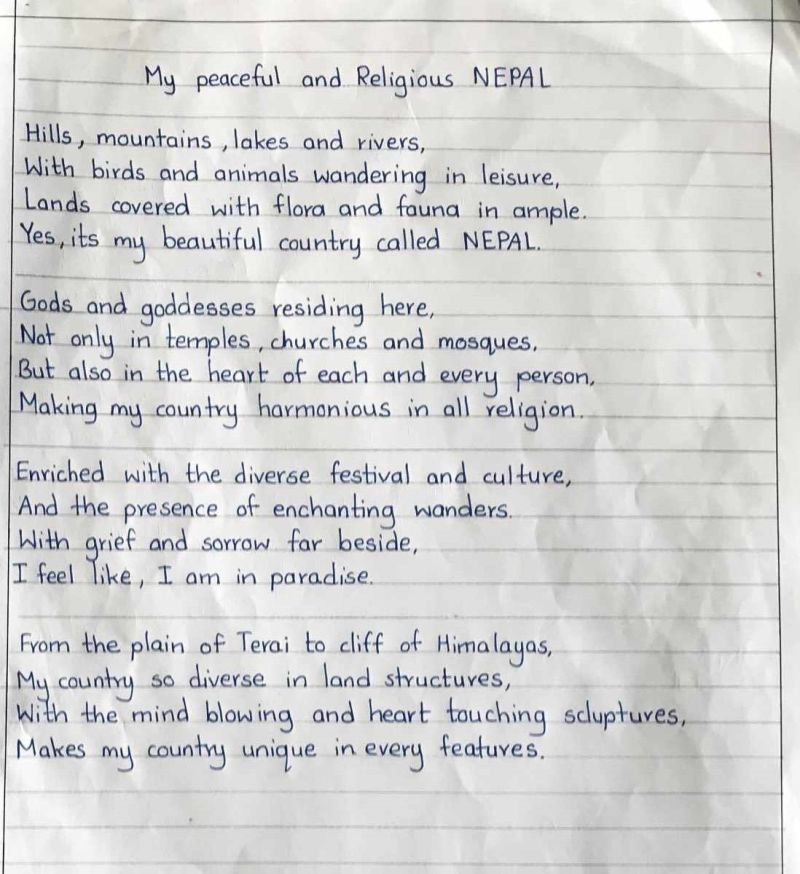 My peaceful and Religious NEPAL
Hills, mountains, lakes and rivers,
With birds and animals wandering in leisure,
Lands covered with flora and fauna in ample.
Yes, its my beautiful country called NEPAL.
Gods and goddesses residing here,
Not only in temples, churches and mosques,
But also in the heart of each and every person,
Making my country harmonious in all religion.
Enriched with the diverse festival and culture,
And the presence of enchanting wanders.
With grief and sorrow far beside,
I feel like, I am in paradise.
From the plain of Terai to cliff of Himalayas,
My country so diverse in land structures,
With the mind blowing and heart touching scluptures,
Makes my country unique in every features.